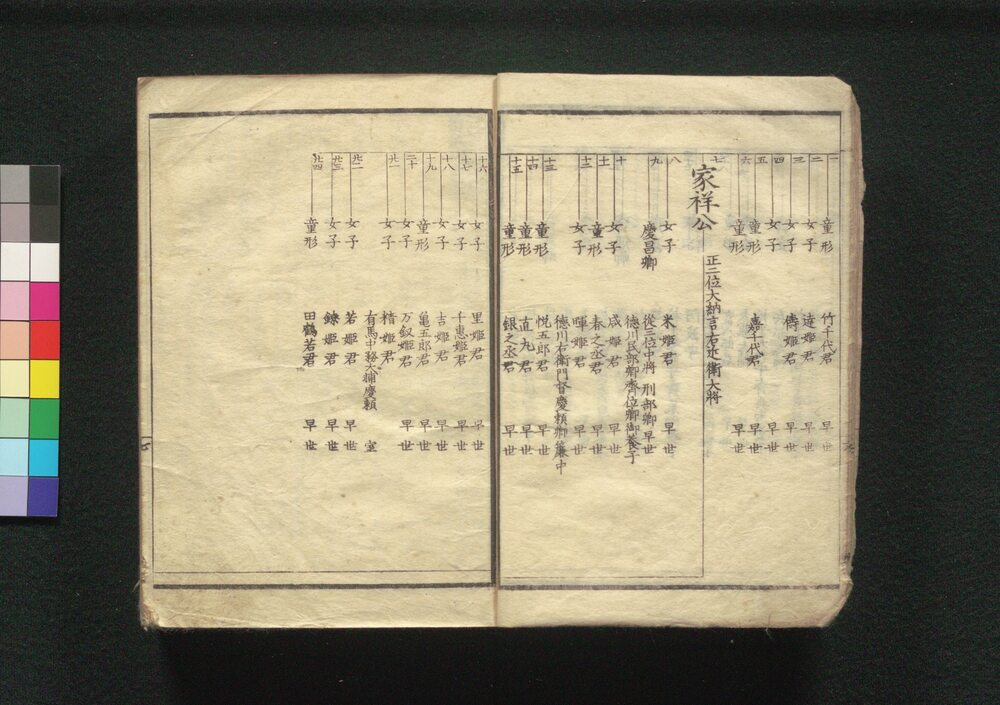 一 童形 竹千代君 早世
二 女子 達姫君 早世
三 女子 儔姫君 早世
四 女子 早世
五 童形 嘉千代君 早世
六 童形 早世
七 家祥公 正二位大納言右近衛大将
八 女子 米姫君 早世
九 慶昌卿 従三位中将 刑部卿 早世
徳川民部卿齊位卿御養子
十 女子 咸姫君 早世
十一 童形 春之丞君 早世
十二 女子 暉姫君 早世
徳川右衛門督慶頼卿簾中
十三 童形 悦五郎君 早世
十四 童形 直丸君 早世
十五 童形 銀之丞君 早世
十六 女子 里姫君 早世
十七 女子 千恵姫君 早世
十八 女子 吉姫君 早世
十九 童形 亀五郎君 早世
二十 女子 万釵姫君 早世
廿一 女子 精姫君
有馬中務大輔慶頼 室
廿二 女子 若姫君 早世
廿三 女子 鐐姫君 早世
廿四 童形 田鶴若君 早世